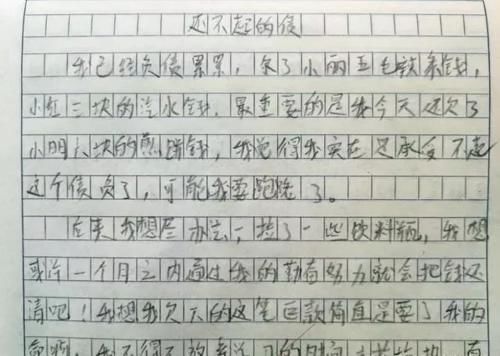 还不起的债
我已经负债累累，欠了小丽五毛钱的辣条钱，
小红三块的汽水钱，最重要的是我今天还欠了
小明六块的煎饼钱，我觉得我实在是承受不起
这个债负了，可能我要跑路了。
后来我想尽办法，捡了一些饮料瓶，我想
或许一个月之内通过我的勤奋努力就会把钱还
清吧！我想我欠下的这笔巨款简直是要了我的
我不得不放弃学习的时间